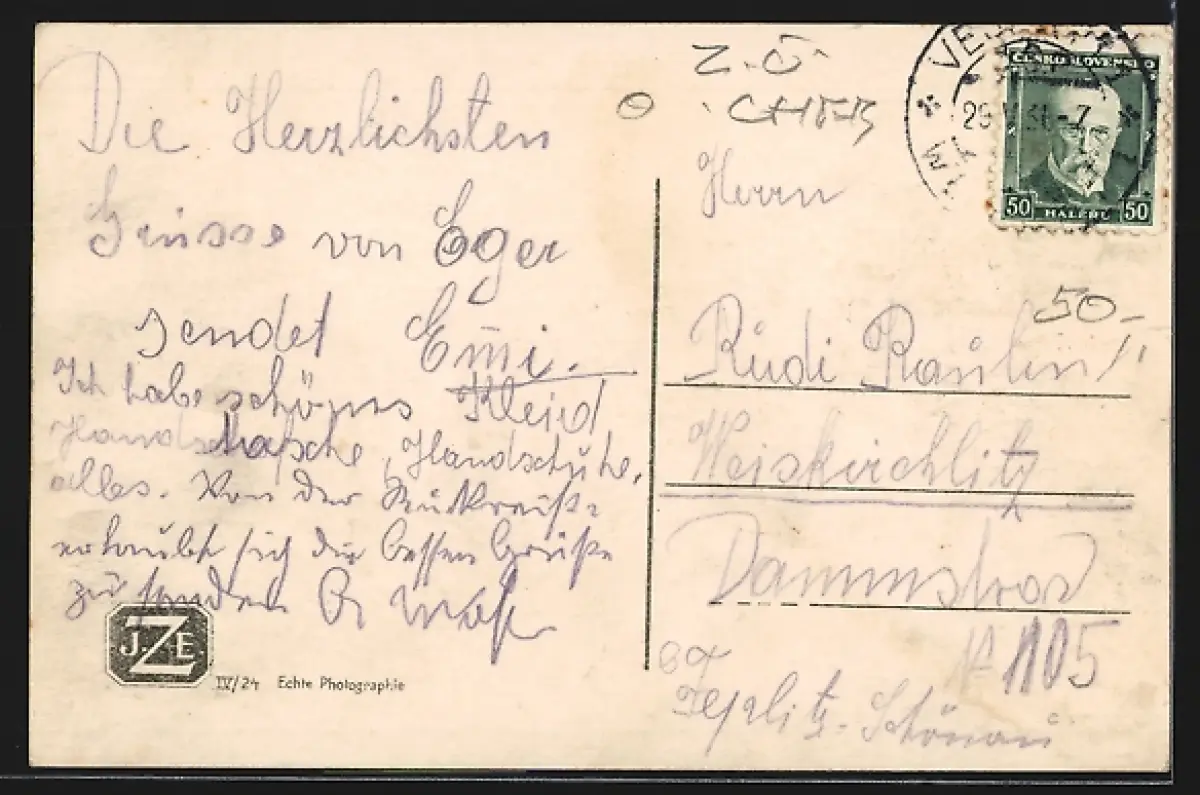 Die Herzlichsten
Grüsse von Eger
sendet Emi.
Ich habe schönes Kleid,
Handtasche, Handschuhe,
alles. Von der
erlaubt sich die besten Grüße
zu senden
J.Z.E.
IV/24 Echte Photographie
Z.Ö
CHEB
ČESKOSLOVENSKO
50 HALÉŘŮ 50
50-
Herrn
Rudi Raulin
Weiskirchlitz
Dammstras
N 105
Teplitz-Schönau